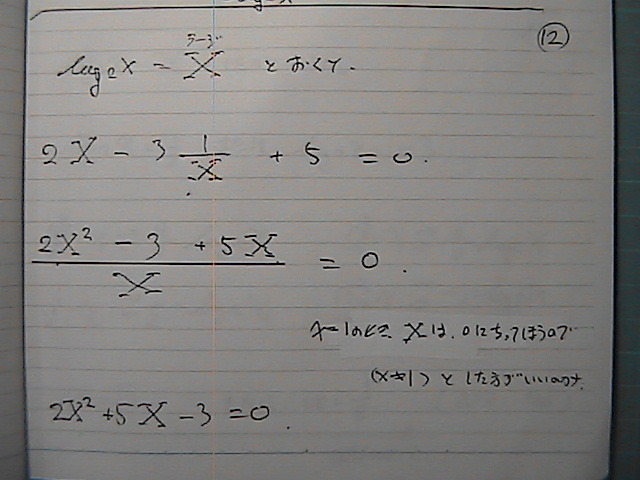 ⑫
log₂x = X とおくて.
2X - 3 1/X + 5 = 0.
(2X² - 3 + 5X)/X = 0.
x=1のとき Xは、0になってしまうので
(x≠1) とした方がいいのか
2X² + 5X - 3 = 0.